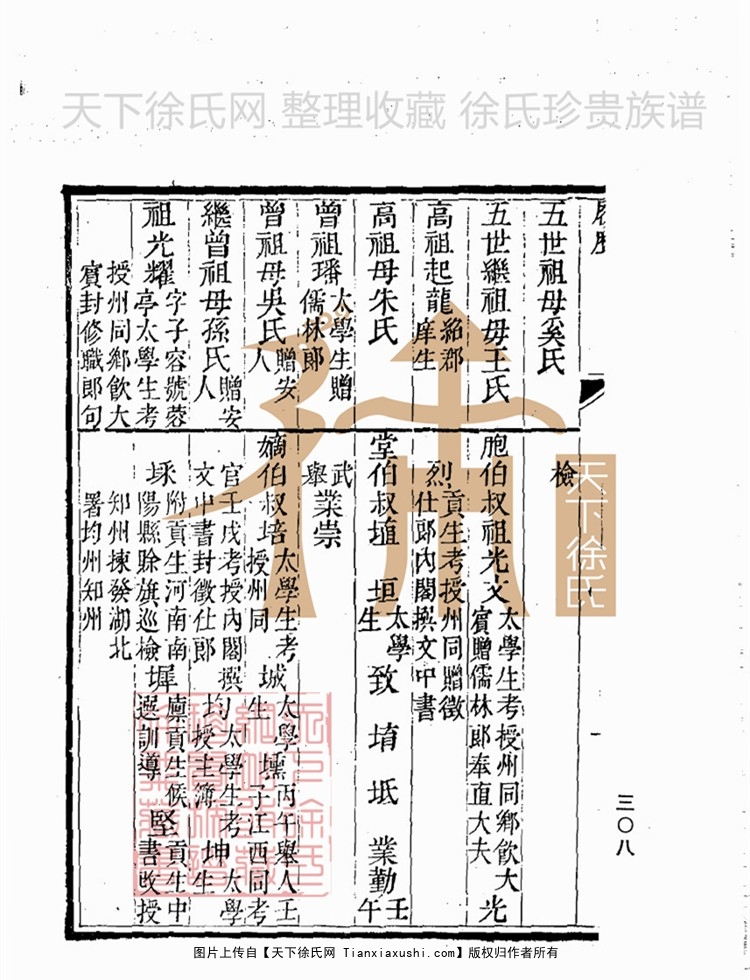 天下徐氏网 整理收藏 徐氏珍贵族谱
五世祖母奚氏
五世繼祖母王氏
高祖起龍 紹郡庠生
高祖母朱氏
曾祖璠 太學生贈儒林郎
曾祖母吳氏 贈安人
繼曾祖母孫氏 贈安人
祖光耀 字子容號蓉亭太學生考
授州同鄉飲大賓封修職郎句
檢
胞伯叔祖光文 太學生考授州同鄉飲大賓贈儒林郎奉直大夫 光
烈 貢生考授州同贈徵仕郎內閣撰文中書
堂伯叔埴 垣 太學生 致 堉 坻 業勤 壬午
武舉 業崇
嫡伯叔培 太學生考授州同 城 太學生 壎 丙午舉人壬子江西同考
官壬戌考授內閣撰文中書封徵仕郎 均 太學生考授主簿 坤 太學生
埰 附貢生河南南陽縣賒旗巡檢 墀 廩貢生候選訓導 堅 貢生中書改授
知州揀發湖北署均州知州
一
三〇八
天下徐氏
图片上传自【天下徐氏网 Tianxiaxushi.com】版权归作者所有